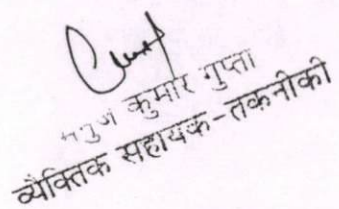 कुमार गुप्ता
व्यैक्तिक सहायक-तकनीकी